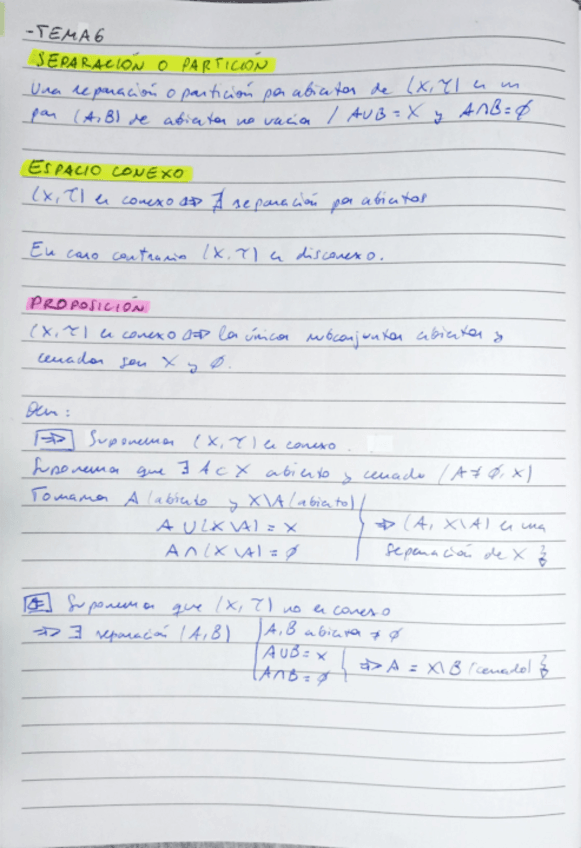 -TEMA6
SEPARACIÓN O PARTICIÓN
Una separación o partición por abiertos de (X,τ) es un
par (A,B) de abiertos no vacíos / A∪B=X y A∩B=∅
ESPACIO CONEXO
(X,τ) es conexo ⇔ ∄ separación por abiertos
En caso contrario (X,τ) es disconexo.
PROPOSICIÓN
(X,τ) es conexo ⇔ los únicos subconjuntos abiertos y
cerrados son X y ∅.
Dem:
⇒ Suponemos (X,τ) es conexo.
Suponemos que ∃ A⊂X abierto y cerrado (A≠∅,X)
Tomamos A (abierto) y X\A (abierto)
A∪(X\A) = X ⇒ (A, X\A) es una
A∩(X\A) = ∅ separación de X ↯
⇐ Suponemos que (X,τ) no es conexo
⇒ ∃ separación (A,B) A,B abiertos ≠ ∅
A∪B = X
A∩B = ∅ ⇒ A = X\B (cerrado) ↯